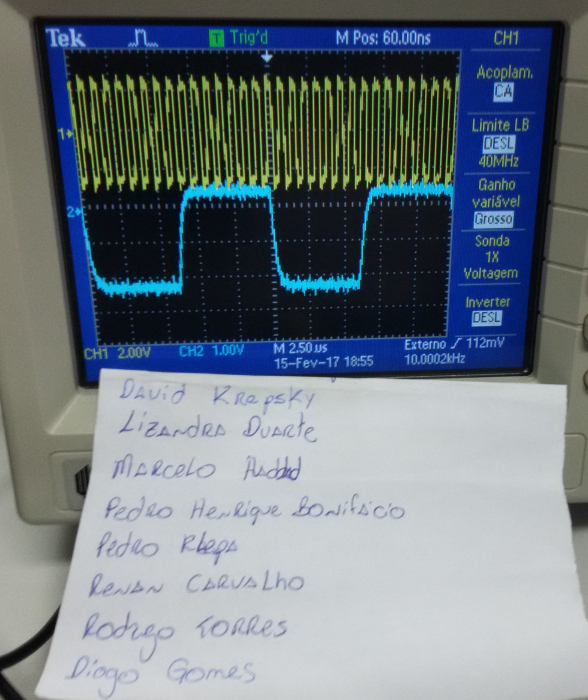 Tek T Trig'd M Pos: 60.00ns CH1
Acoplam.
CA
Limite LB
DESL
40MHz
Ganho
variável
Grosso
Sonda
1X
Voltagem
Inverter
DESL
1
2
CH1 2.00V CH2 1.00V M 2.50µs Externo 112mV
15-Fev-17 18:55 10.0002kHz
David Krepsky
Lizandra Duarte
Marcelo Haddad
Pedro Henrique Bonifácio
Pedro
Renan Carvalho
Rodrigo Torres
Diogo Gomes